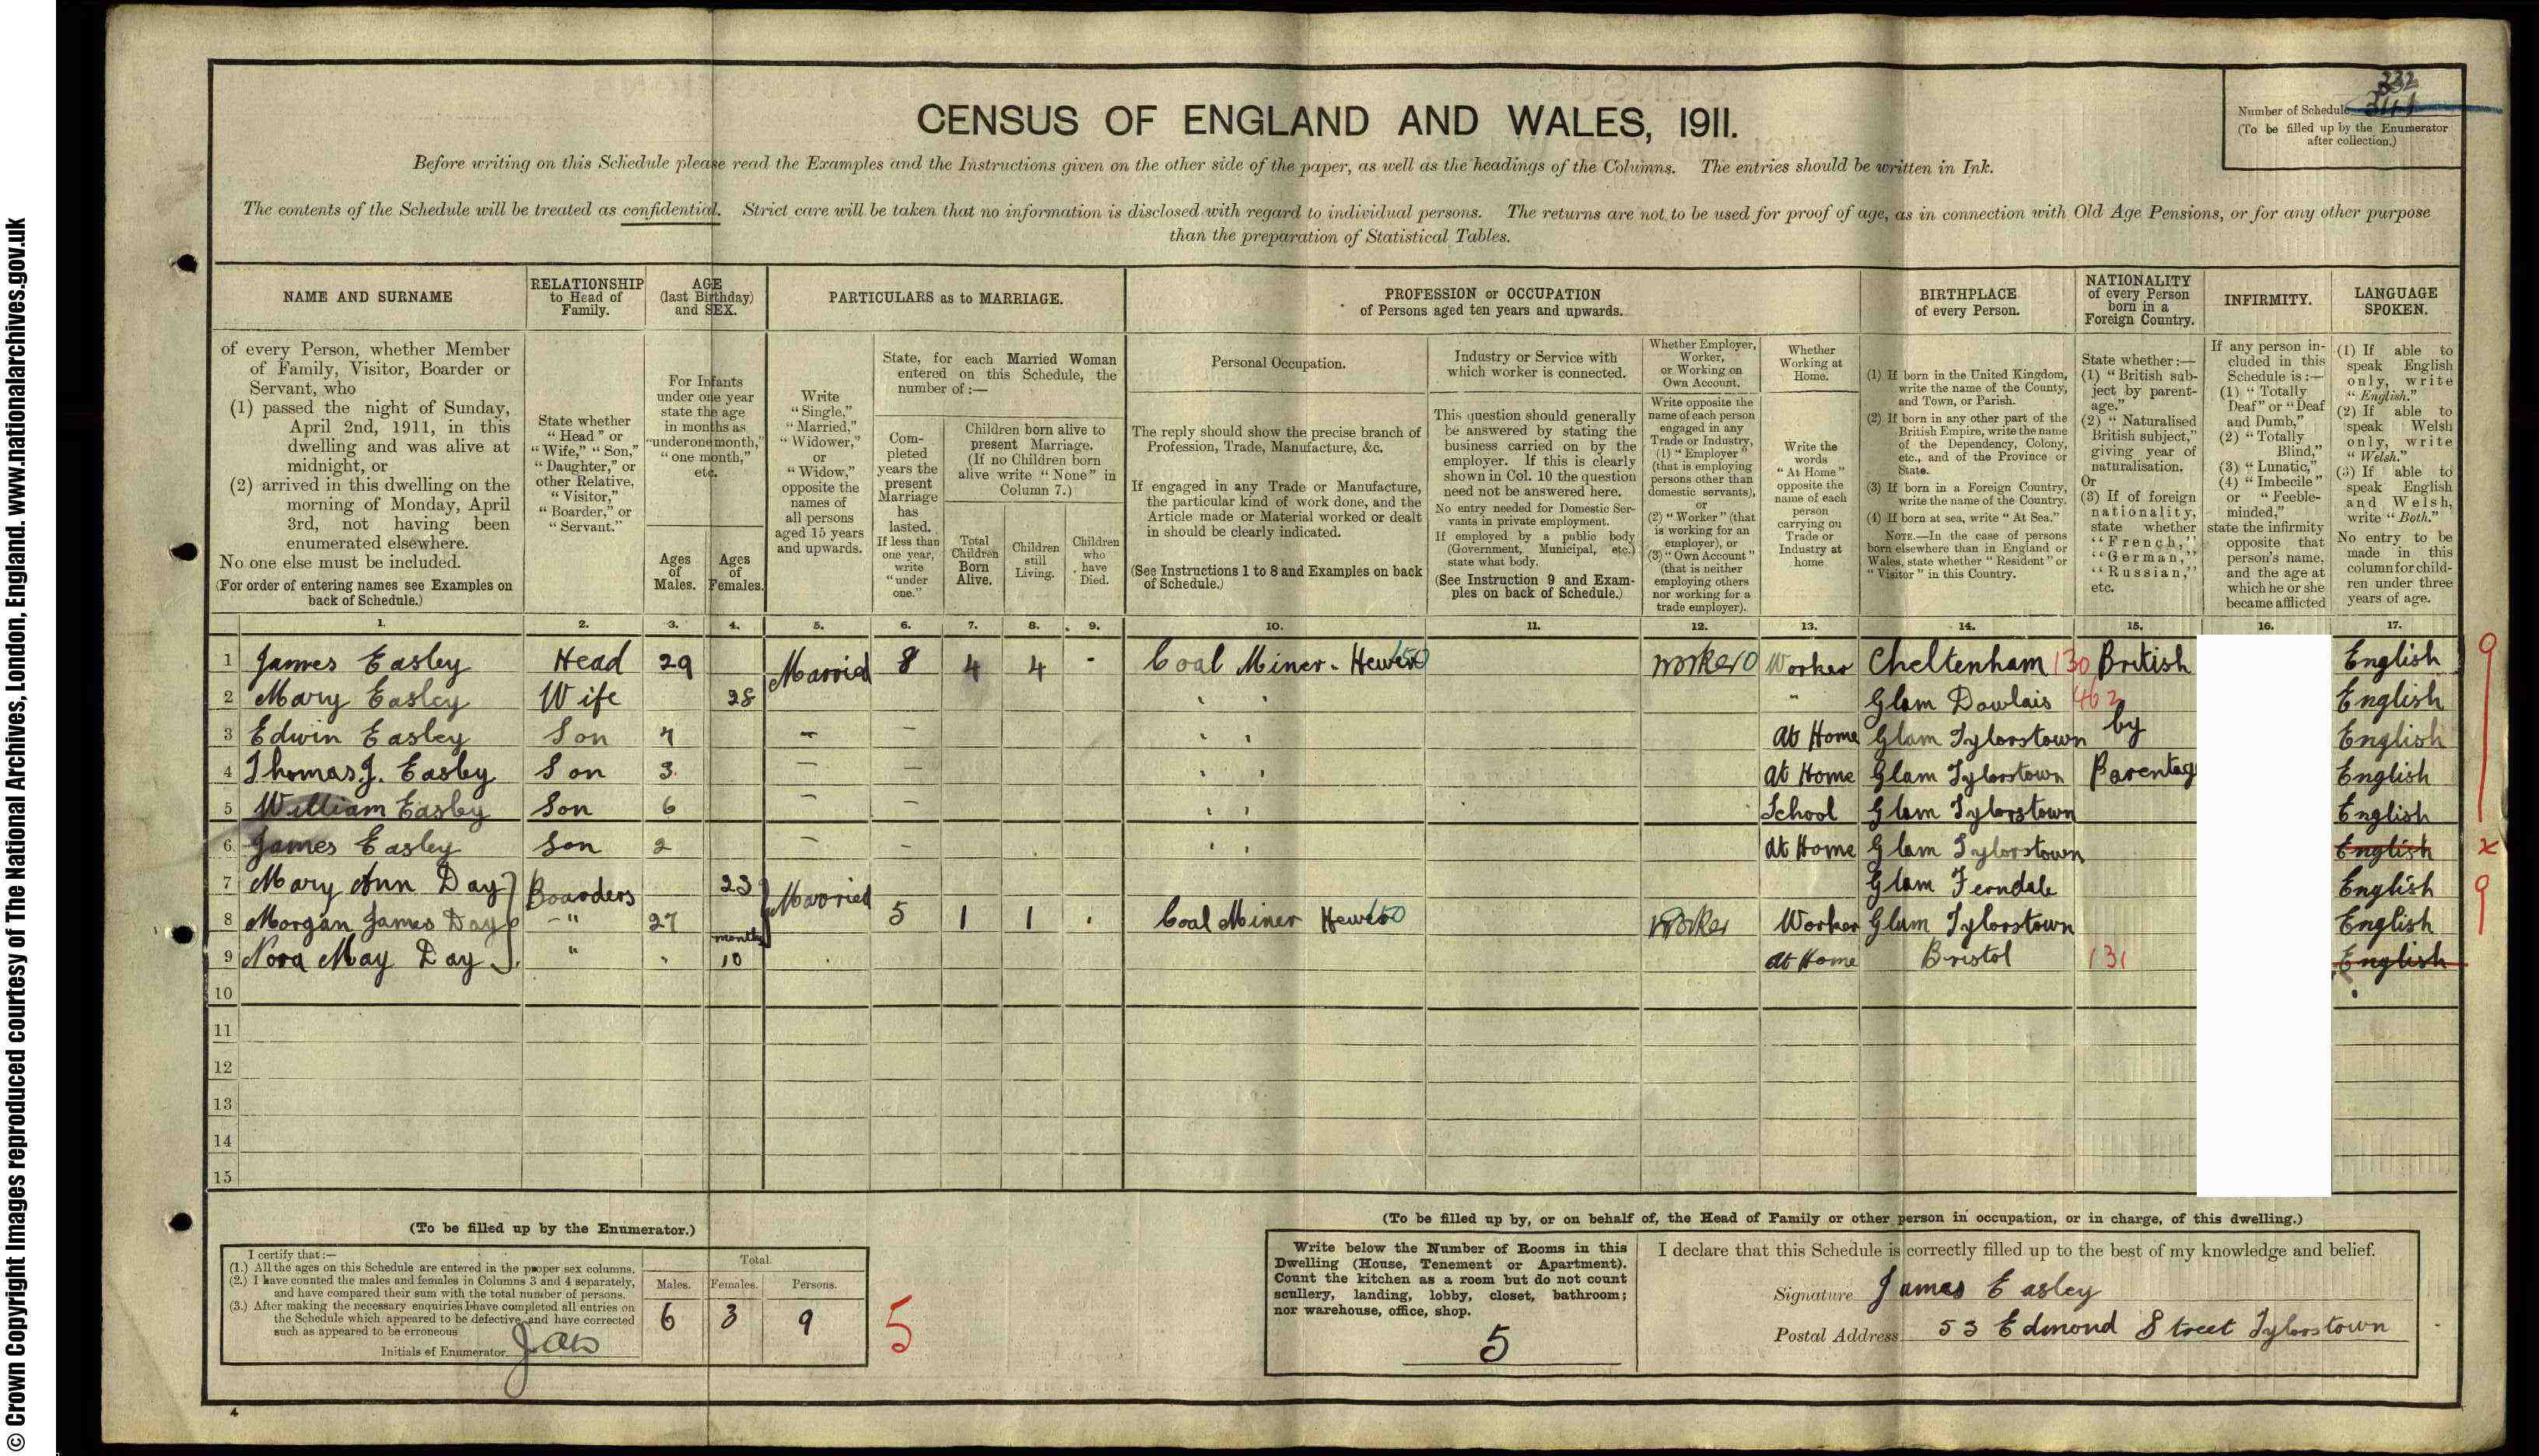 © Crown Copyright Images reproduced courtesy of The National Archives, London, England. www.nationalarchives.gov.uk
332
Number of Schedule 344
(To be filled up by the Enumerator
after collection.)
CENSUS OF ENGLAND AND WALES, 1911.
Before writing on this Schedule please read the Examples and the Instructions given on the other side of the paper, as well as the headings of the Columns. The entries should be written in Ink.
The contents of the Schedule will be treated as confidential. Strict care will be taken that no information is disclosed with regard to individual persons. The returns are not to be used for proof of age, as in connection with Old Age Pensions, or for any other purpose
than the preparation of Statistical Tables.
NAME AND SURNAME
of every Person, whether Member
of Family, Visitor, Boarder or
Servant, who
(1) passed the night of Sunday,
April 2nd, 1911, in this
dwelling and was alive at
midnight, or
(2) arrived in this dwelling on the
morning of Monday, April
3rd, not having been
enumerated elsewhere.
No one else must be included.
(For order of entering names see Examples on
back of Schedule.)
RELATIONSHIP
to Head of
Family.
State whether
"Head" or
"Wife," "Son,"
"Daughter," or
other Relative,
"Visitor,"
"Boarder," or
"Servant."
AGE
(last Birthday)
and SEX.
For Infants
under one year
state the age
in months as
"under one month,"
"one month,"
etc.
Ages
of
Males.
Ages
of
Females.
PARTICULARS as to MARRIAGE.
Write
"Single,"
"Married,"
"Widower,"
or
"Widow,"
opposite the
names of
all persons
aged 15 years
and upwards.
State, for each Married Woman
entered on this Schedule, the
number of :—
Com-
pleted
years the
present
Marriage
has
lasted.
If less than
one year,
write
"under
one."
Children born alive to
present Marriage.
(If no Children born
alive write "None" in
Column 7.)
Total
Children
Born
Alive.
Children
still
Living.
Children
who
have
Died.
PROFESSION or OCCUPATION
of Persons aged ten years and upwards.
Personal Occupation.
The reply should show the precise branch of
Profession, Trade, Manufacture, &c.
If engaged in any Trade or Manufacture,
the particular kind of work done, and the
Article made or Material worked or dealt
in should be clearly indicated.
(See Instructions 1 to 8 and Examples on back
of Schedule.)
Industry or Service with
which worker is connected.
This question should generally
be answered by stating the
business carried on by the
employer. If this is clearly
shown in Col. 10 the question
need not be answered here.
No entry needed for Domestic Ser-
vants in private employment.
If employed by a public body
(Government, Municipal, etc.)
state what body.
(See Instruction 9 and Exam-
ples on back of Schedule.)
Whether Employer,
Worker,
or Working on
Own Account.
Write opposite the
name of each person
engaged in any
Trade or Industry,
(1) "Employer"
(that is employing
persons other than
domestic servants),
or
(2) "Worker" (that
is working for an
employer), or
(3) "Own Account"
(that is neither
employing others
nor working for a
trade employer).
Whether
Working at
Home.
Write the
words
"At Home"
opposite the
name of each
person
carrying on
Trade or
Industry at
home
BIRTHPLACE
of every Person.
(1) If born in the United Kingdom,
write the name of the County,
and Town, or Parish.
(2) If born in any other part of the
British Empire, write the name
of the Dependency, Colony,
etc., and of the Province or
State.
(3) If born in a Foreign Country,
write the name of the Country.
(4) If born at sea, write "At Sea."
NOTE.—In the case of persons
born elsewhere than in England or
Wales, state whether "Resident" or
"Visitor" in this Country.
NATIONALITY
of every Person
born in a
Foreign Country.
State whether :—
(1) "British sub-
ject by parent-
age."
(2) "Naturalised
British subject,"
giving year of
naturalisation.
Or
(3) If of foreign
nationality,
state whether
"French,"
"German,"
"Russian,"
etc.
INFIRMITY.
If any person in-
cluded in this
Schedule is :—
(1) "Totally
Deaf" or "Deaf
and Dumb,"
(2) "Totally
Blind,"
(3) "Lunatic,"
(4) "Imbecile"
or "Feeble-
minded,"
state the infirmity
opposite that
person's name,
and the age at
which he or she
became afflicted
LANGUAGE
SPOKEN.
(1) If able to
speak English
only, write
"English."
(2) If able to
speak Welsh
only, write
"Welsh."
(3) If able to
speak English
and Welsh,
write "Both."
No entry to be
made in this
column for child-
ren under three
years of age.
1. 2. 3. 4. 5. 6. 7. 8. 9. 10. 11. 12. 13. 14. 15. 16. 17.
1 James Easley Head 29 Married 8 4 4 - Coal Miner - Hewer 150 worker 0 Worker Cheltenham 130 British English 9
2 Mary Easley Wife 28 " Glam Dowlais 462 English
3 Edwin Easley Son 7 - - At Home Glam Tylorstown by English
4 Thomas J. Easley Son 3 - - At Home Glam Tylorstown Parentag English
5 William Easley Son 6 - - School Glam Tylorstown English
6 James Easley Son 2 - - At Home Glam Tylorstown English x
7 Mary Ann Day Boarders 23 Married Glam Ferndale English 9
8 Morgan James Day -"- 27 5 1 1 Coal Miner Hewer 150 Worker Worker Glam Tylorstown English
months
9 Nora May Day " 10 At Home Bristol 131 English
10
11
12
13
14
15
(To be filled up by the Enumerator.)
I certify that :—
(1.) All the ages on this Schedule are entered in the proper sex columns.
(2.) I have counted the males and females in Columns 3 and 4 separately,
and have compared their sum with the total number of persons.
(3.) After making the necessary enquiries I have completed all entries on
the Schedule which appeared to be defective, and have corrected
such as appeared to be erroneous
Initials of Enumerator
Total.
Males. Females. Persons.
6 3 9
5
(To be filled up by, or on behalf of, the Head of Family or other person in occupation, or in charge, of this dwelling.)
Write below the Number of Rooms in this
Dwelling (House, Tenement or Apartment).
Count the kitchen as a room but do not count
scullery, landing, lobby, closet, bathroom;
nor warehouse, office, shop.
5
I declare that this Schedule is correctly filled up to the best of my knowledge and belief.
Signature James Easley
Postal Address 53 Edmond Street Tylorstown
4